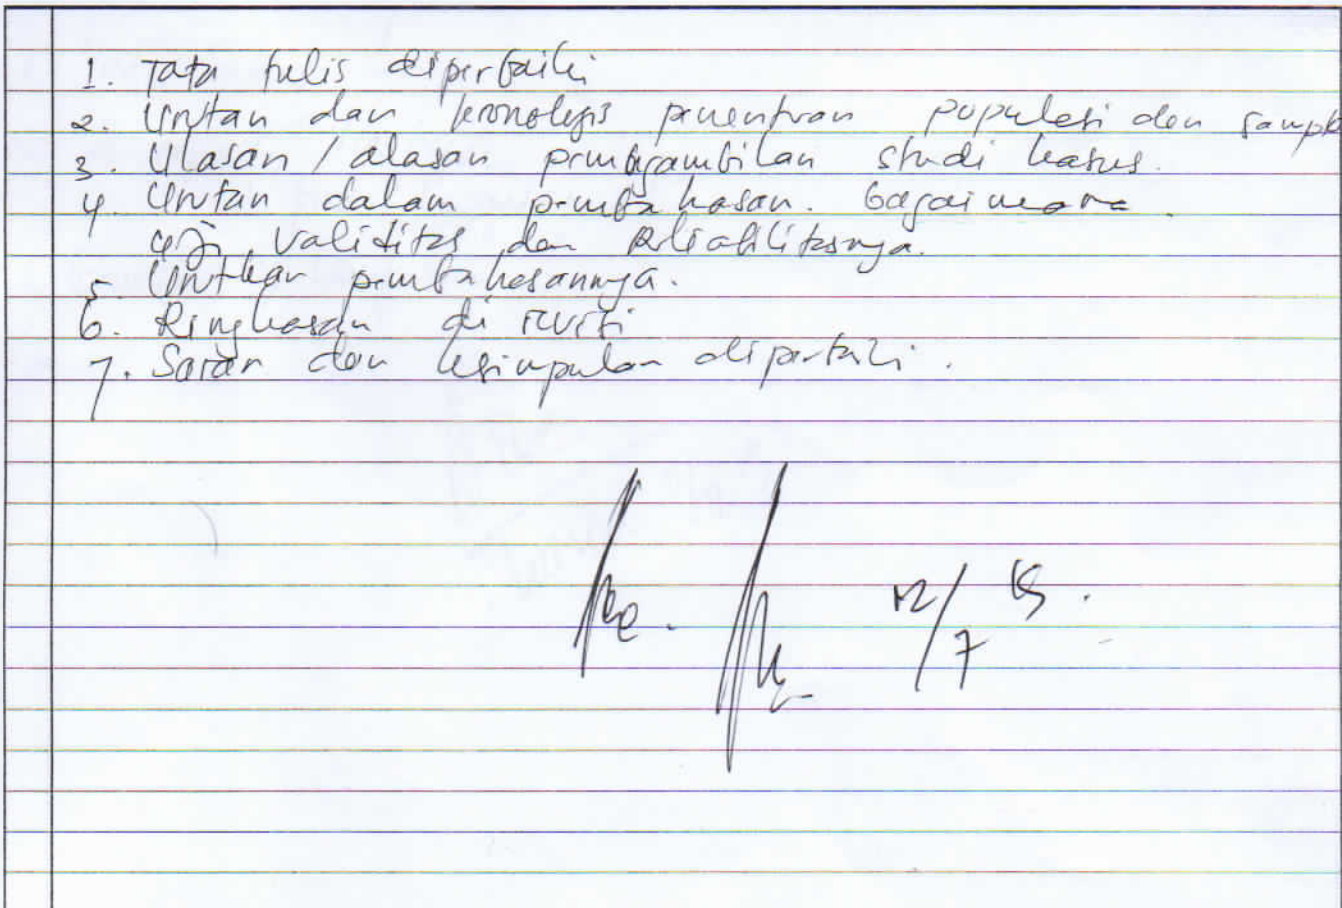 1. Tata tulis diperbaiki
2. Urutan dan kronologis penentuan populasi dan sampel
3. Ulasan / alasan pengambilan studi kasus.
4. Urutan dalam pembahasan. bagaimana
uji validitas dan reliabilitasnya.
5. Urutkan pembahasannya.
6. Ringkasan di revisi
7. Saran dan kesimpulan diperbaiki.
12/7